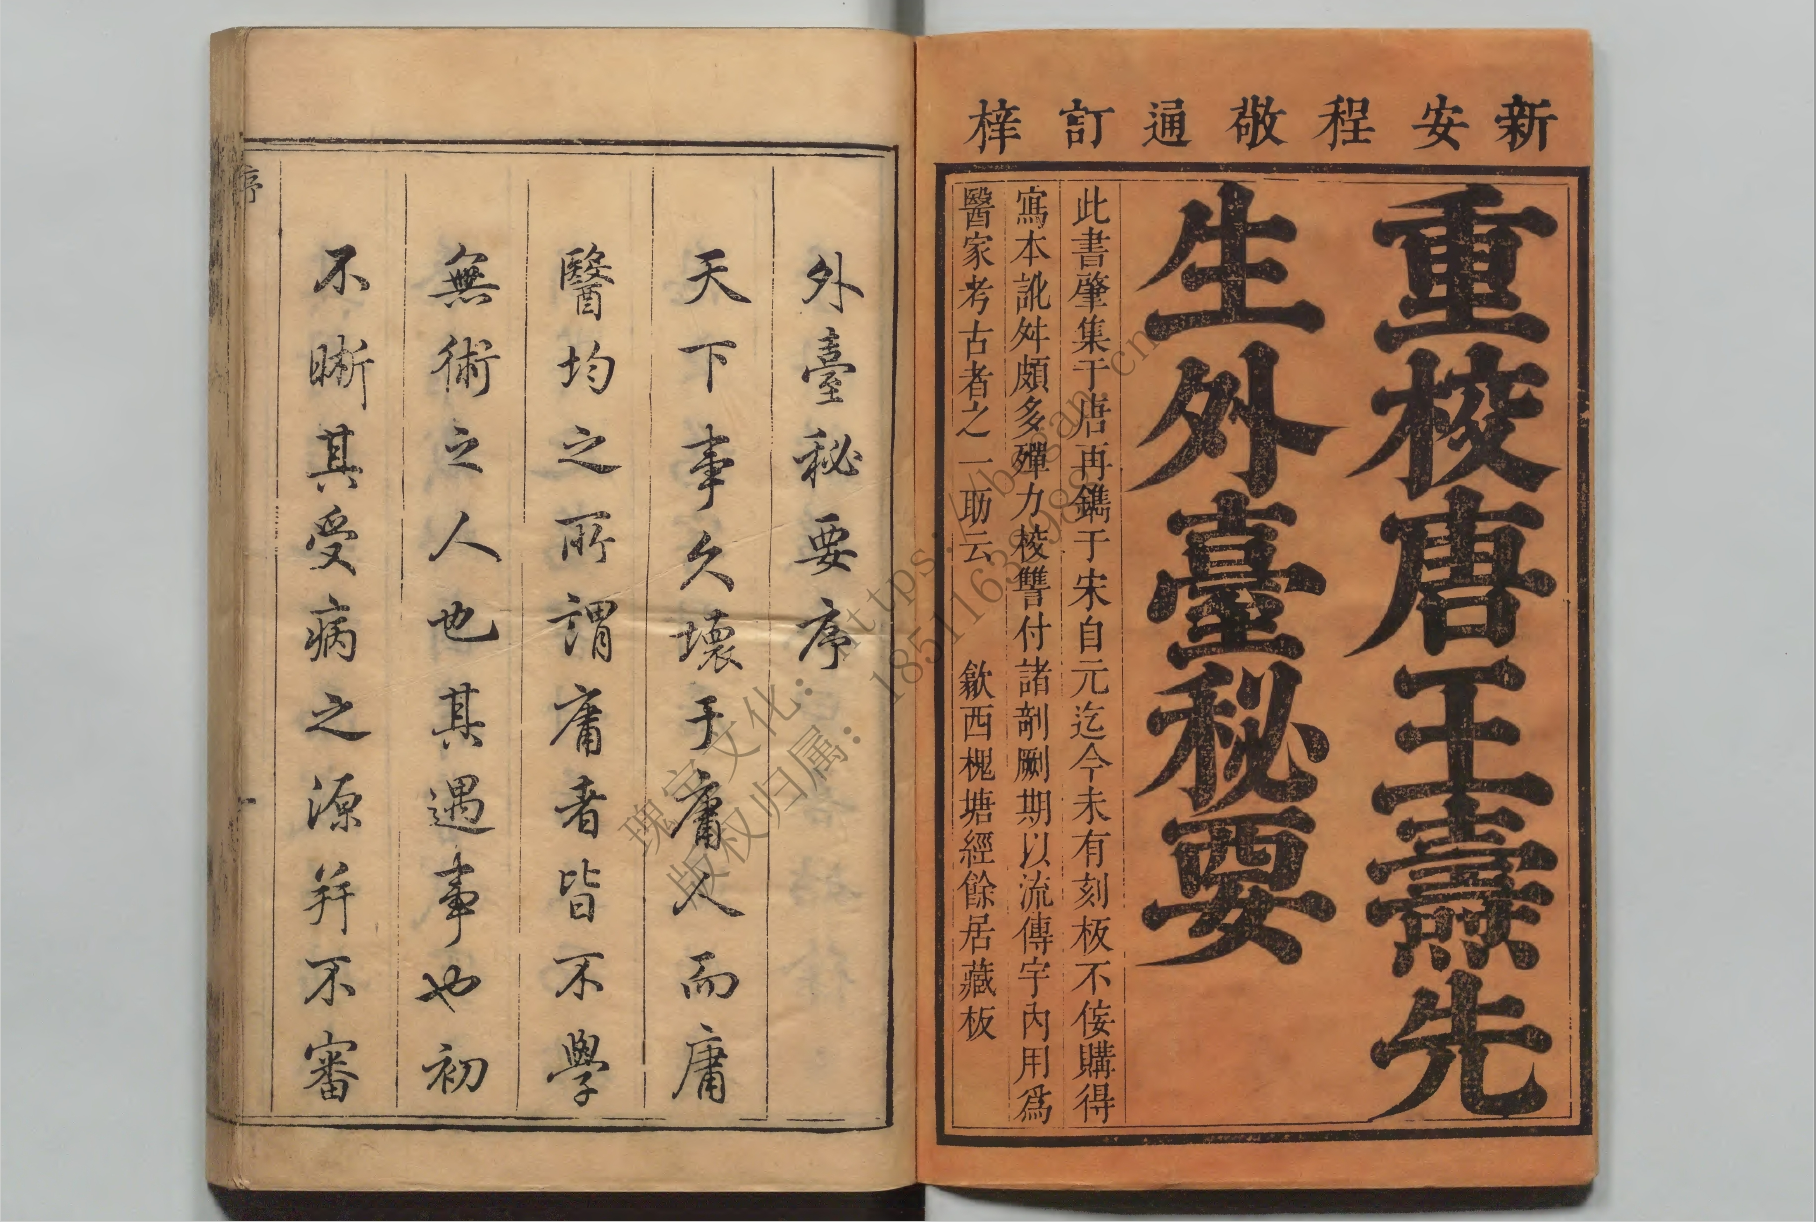 新安程敬通訂梓
重校唐王燾先
生外臺秘要
此書肇集于唐再鐫于宋自元迄今未有刻板不佞購得
寫本訛舛頗多殫力校讐付諸剞劂期以流傳宇內用爲
醫家考古者之一助云 歙西槐塘經餘居藏板
外臺秘要序
天下事久壞于庸人而庸
醫均之所謂庸者皆不學
無術之人也其遇事也初
不晰其受病之源并不審
序
一
瑰宝文化:https://bogan.cn
版权归属:18511639988